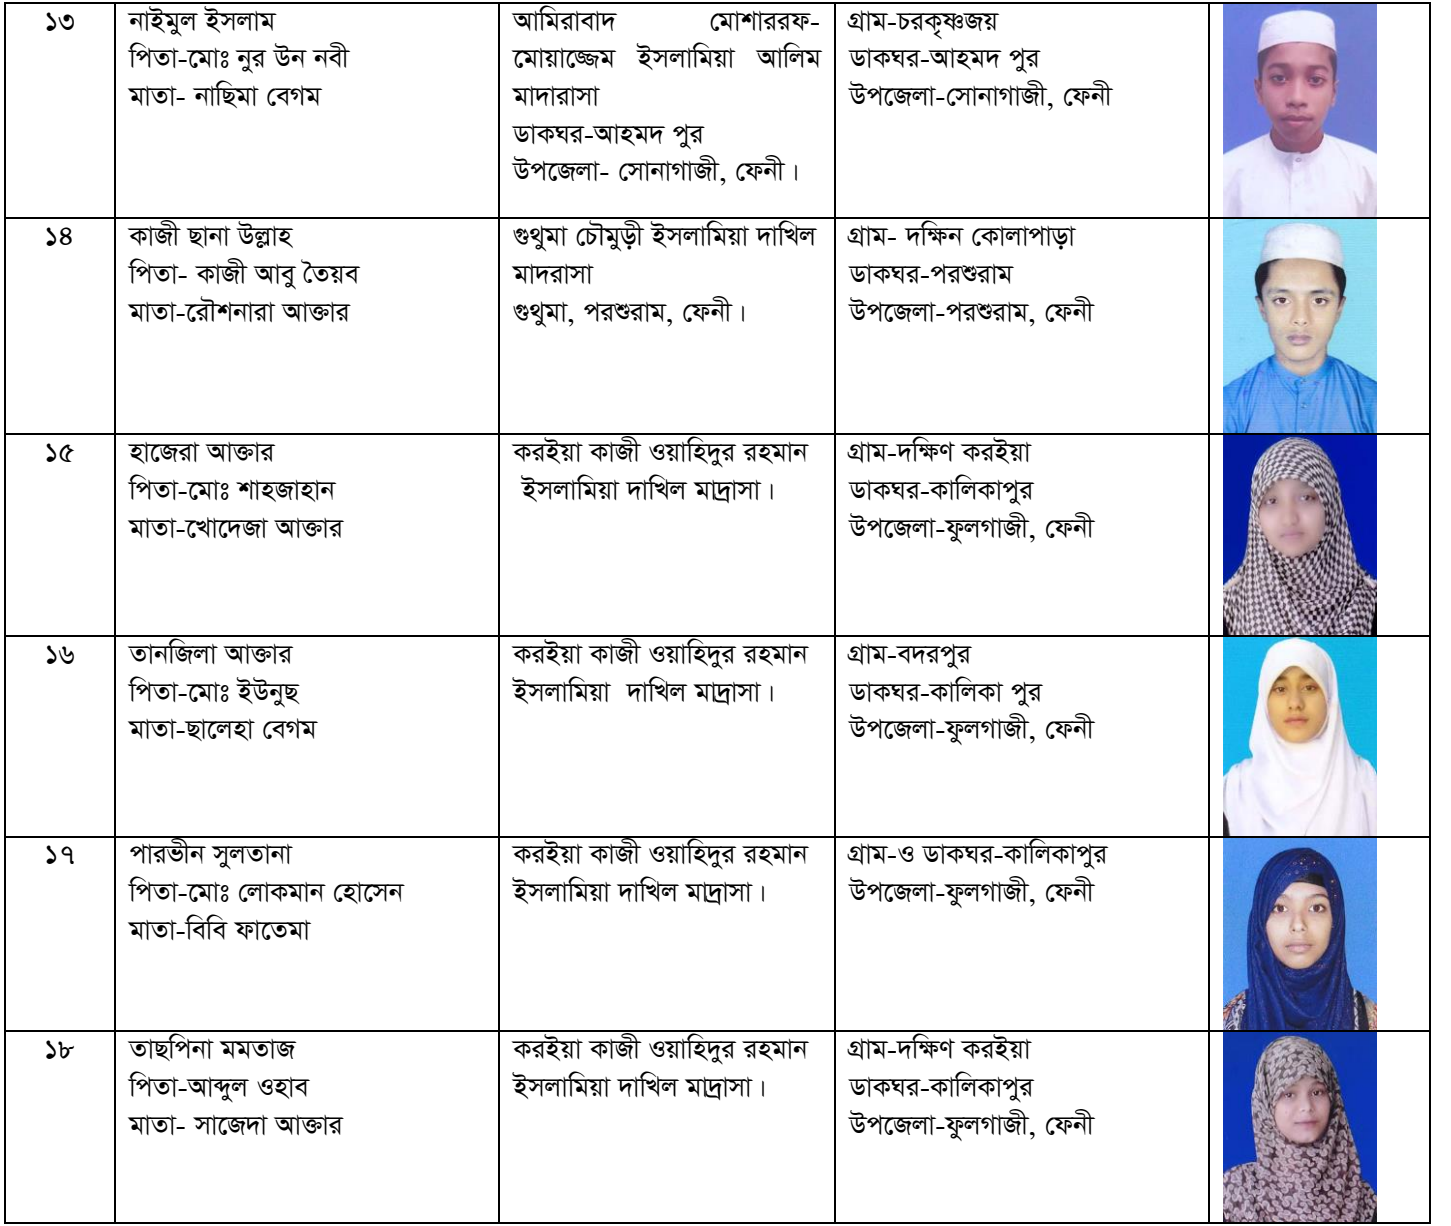 ১৩
নাইমুল ইসলাম
পিতা-মোঃ নুর উন নবী
মাতা- নাছিমা বেগম
আমিরাবাদ মোশাররফ-
মোয়াজ্জেম ইসলামিয়া আলিম
মাদারাসা
ডাকঘর-আহমদ পুর
উপজেলা- সোনাগাজী, ফেনী।
গ্রাম-চরকৃষ্ণজয়
ডাকঘর-আহমদ পুর
উপজেলা-সোনাগাজী, ফেনী
১৪
কাজী ছানা উল্লাহ
পিতা- কাজী আবু তৈয়ব
মাতা-রৌশনারা আক্তার
গুথুমা চৌমুড়ী ইসলামিয়া দাখিল
মাদরাসা
গুথুমা, পরশুরাম, ফেনী।
গ্রাম- দক্ষিন কোলাপাড়া
ডাকঘর-পরশুরাম
উপজেলা-পরশুরাম, ফেনী
১৫
হাজেরা আক্তার
পিতা-মোঃ শাহজাহান
মাতা-খোদেজা আক্তার
করইয়া কাজী ওয়াহিদুর রহমান
ইসলামিয়া দাখিল মাদ্রাসা।
গ্রাম-দক্ষিণ করইয়া
ডাকঘর-কালিকাপুর
উপজেলা-ফুলগাজী, ফেনী
১৬
তানজিলা আক্তার
পিতা-মোঃ ইউনুছ
মাতা-ছালেহা বেগম
করইয়া কাজী ওয়াহিদুর রহমান
ইসলামিয়া দাখিল মাদ্রাসা।
গ্রাম-বদরপুর
ডাকঘর-কালিকা পুর
উপজেলা-ফুলগাজী, ফেনী
১৭
পারভীন সুলতানা
পিতা-মোঃ লোকমান হোসেন
মাতা-বিবি ফাতেমা
করইয়া কাজী ওয়াহিদুর রহমান
ইসলামিয়া দাখিল মাদ্রাসা।
গ্রাম-ও ডাকঘর-কালিকাপুর
উপজেলা-ফুলগাজী, ফেনী
১৮
তাছপিনা মমতাজ
পিতা-আব্দুল ওহাব
মাতা- সাজেদা আক্তার
করইয়া কাজী ওয়াহিদুর রহমান
ইসলামিয়া দাখিল মাদ্রাসা।
গ্রাম-দক্ষিণ করইয়া
ডাকঘর-কালিকাপুর
উপজেলা-ফুলগাজী, ফেনী